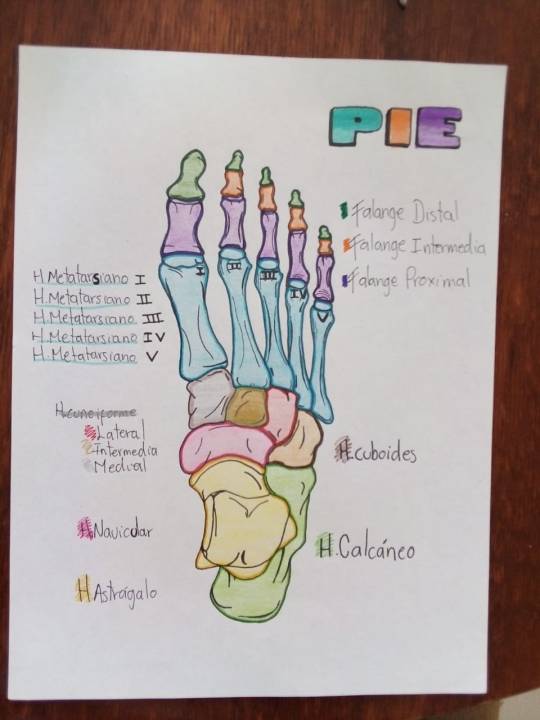 PIE
Falange Distal
Falange Intermedia
Falange Proximal
I
II
III
IV
V
H. Metatarsiano I
H. Metatarsiano II
H. Metatarsiano III
H. Metatarsiano IV
H. Metatarsiano V
H. cuneiforme
Lateral
Intermedia
Medial
H. cuboides
H. Navicular
H. Calcáneo
H Astrágalo